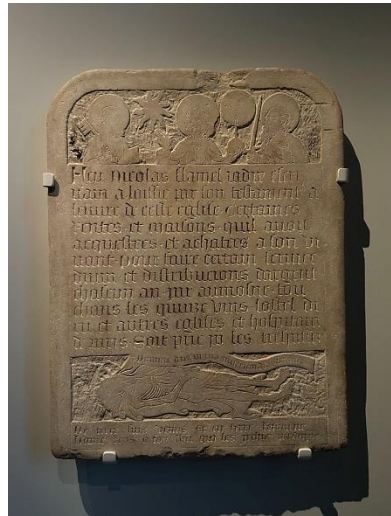 Feu nicolas flamel jadis escri
uain a laissie par son testament a
leuure de ceste eglise certaines
rentes et maisons quil auoit
acquestees et achatees a son vi
uant pour faire certain seruice
diuin et distribucions dargent
chascun an par aumosne tou
chans les quinze vins lostel di
eu et autres eglises et hospitaux
a paris Soit prie po les trespassez
Domine deus in tua misericordia
De terre suis venus et en terre retourne
Lame rens a toy qui les pechiez pardonne